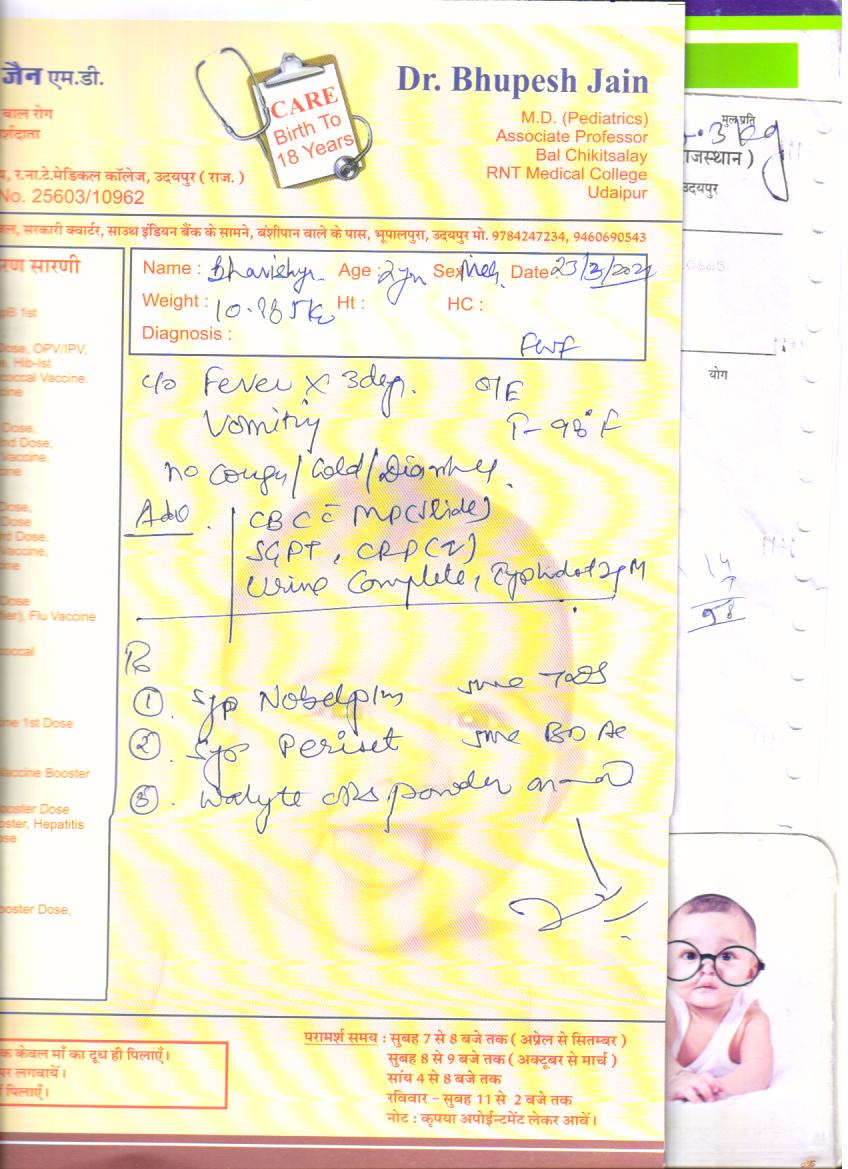 जैन एम.डी.
बाल रोग
र्शदाता
र.ना.टे.मेडिकल कॉलेज, उदयपुर ( राज. )
No. 25603/10962
CARE
Birth To
18 Years
Dr. Bhupesh Jain
M.D. (Pediatrics)
Associate Professor
Bal Chikitsalay
RNT Medical College
Udaipur
सरकारी क्वार्टर, साउथ इंडियन बैंक के सामने, बंशीपान वाले के पास, भूपालपुरा, उदयपुर मो. 9784247234, 9460690543
मूल प्रति
राजस्थान )
उदयपुर
योग
रण सारणी
1st
Dose, OPV/IPV,
Hib-Ist
Vaccine.
Dose,
Dose,
Vaccine,
Dose,
Dose
Dose,
Vaccine,
Dose
Flu Vaccine
1st Dose
Vaccine Booster
Booster Dose
Hepatitis
Booster Dose,
Name : Age : 2 Sex Date : 23/3/2021
Weight : 10. Ht : HC :
Diagnosis :
c/o Fever x 3 O/E
Vomiting T- 98°F
no Cough/Cold/Diarrhea
Adv. CBC c̄ MP(Slide)
SGPT, CRP(Q)
Urine Complete, Typhidot IgM
Rx
① Syp 5ml TDS
② Syp Periset 5ml BD
③ Walyte ORS powder
14
98
के केवल माँ का दूध ही पिलाएँ।
पर लगवायें।
पिलाएँ।
परामर्श समय : सुबह 7 से 8 बजे तक ( अप्रेल से सितम्बर )
सुबह 8 से 9 बजे तक ( अक्टूबर से मार्च )
सांय 4 से 8 बजे तक
रविवार – सुबह 11 से 2 बजे तक
नोट : कृपया अपोईन्टमेंट लेकर आवें।